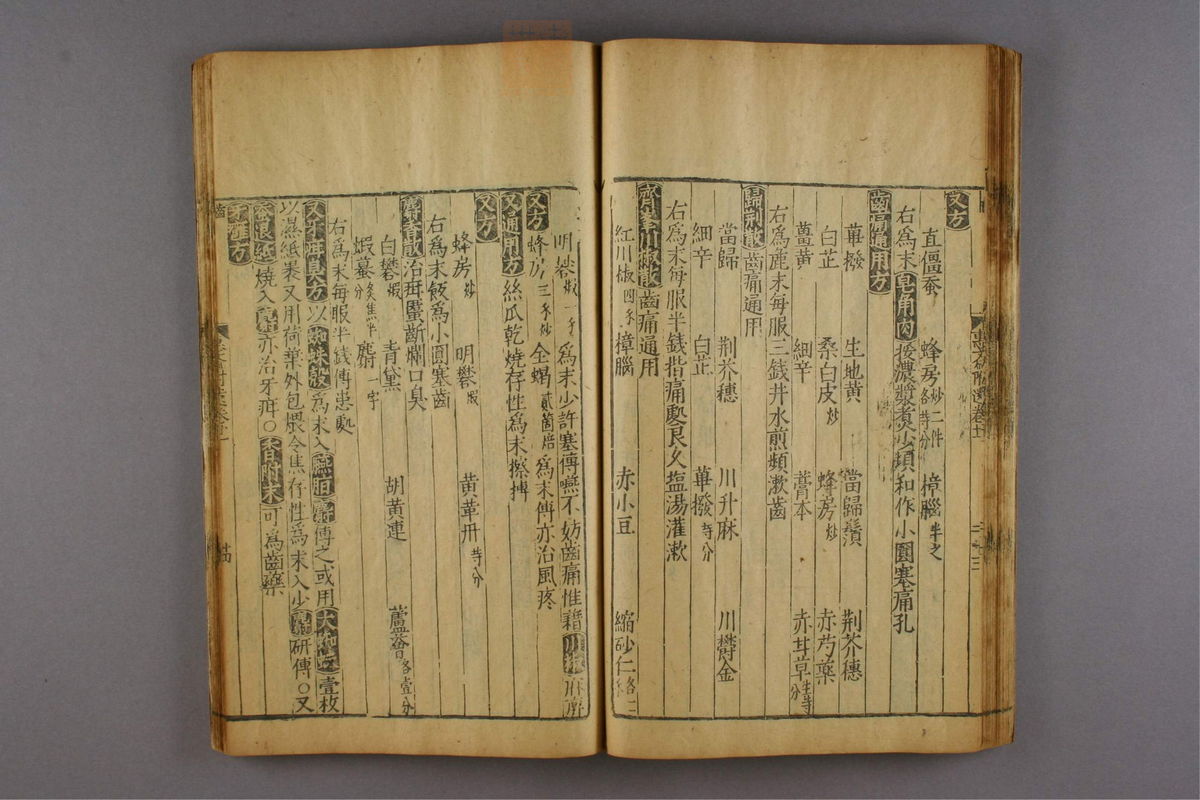 又方
直僵蚕 蜂房炒二件各等分 樟腦半之
右為末皂角肉挼濃漿煮少頃和作小圓塞痛孔
齒痛通用方
蓽撥 生地黃 當歸鬚 荆芥穗
白芷 桑白皮炒 蜂房炒 赤芍藥
薑黃 細辛 藁本 赤甘草生等分
右為麁末每服三錢井水煎頻漱齒
歸荆散齒痛通用
當歸 荆芥穗 川升麻 川鬱金
細辛 白芷 蓽撥等分
右為末每服半錢揩痛處良久塩湯灌漱
齊峯川椒散齒痛通用
紅川椒 樟腦 赤小豆 縮砂仁各二
明礬煅 為末少許塞傅嚥不妨齒痛惟藉川椒麻痹
又方蜂房三炒全蝎貳箇焙為末傅亦治風疼
又通用方絲瓜乾燒存性為末擦搏
又方
蜂房炒 明礬煅 黃革丹等分
右為末飯為小圓塞齒
麝香散治毋䘌齗爛口臭
白礬煅 青黛 胡黃連 蘆薈各壹分
蝦蟇炙焦半分 麝一字
右為末每服半錢傅患處
又牙疳臭方以蜘蛛殼為末入臙脂麝傅之或用大蜘蛛壹枚
以濕紙裹又用荷葉外包煨令焦存性為末入少麝研傅○又
蚕退紙燒入麝亦治牙疳○香附末可為齒藥
牙癰方